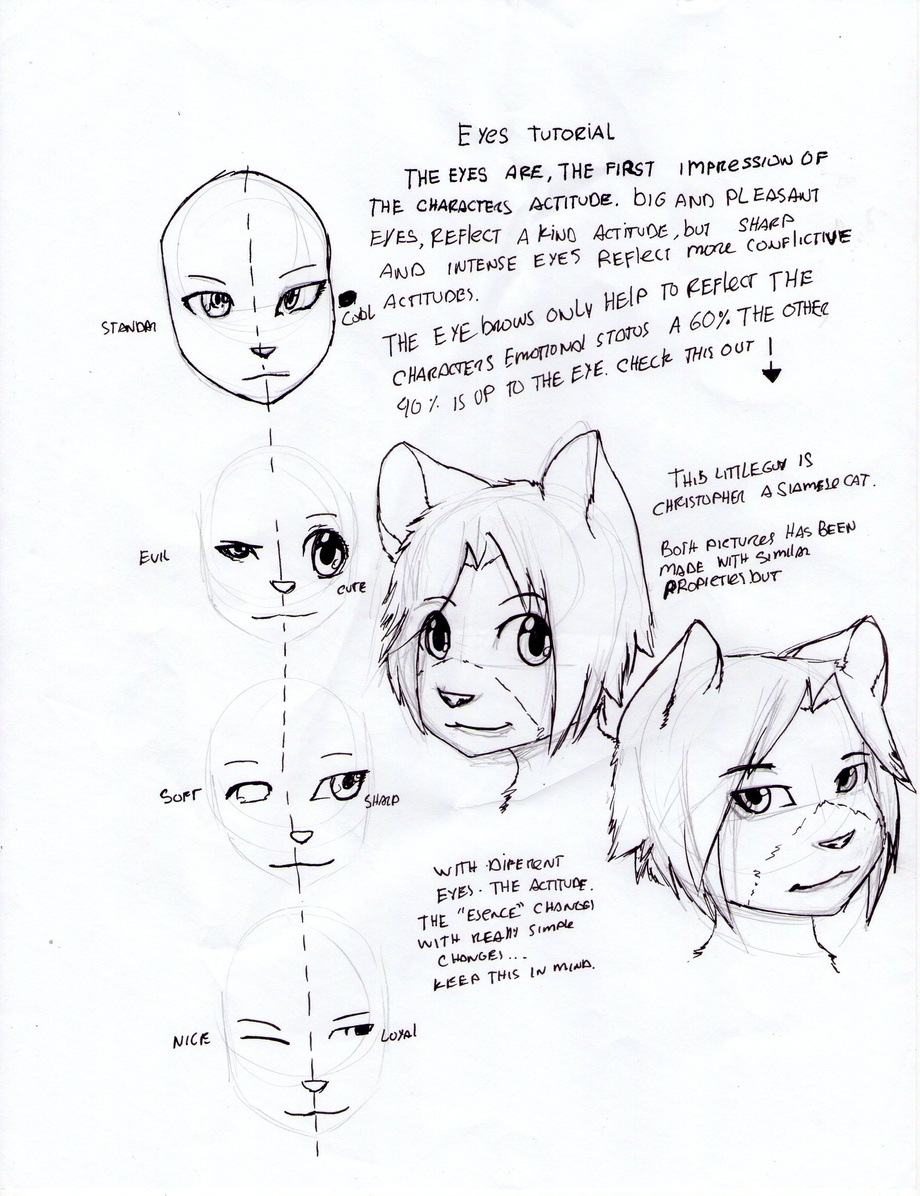 Eyes TUTORIAL
THE EYES ARE, THE FIRST IMPRESSION OF
THE CHARACTERS ACTITUDE. BIG AND PLEASANT
EYES, REFLECT A KIND ACTITUDE, BUT SHARP
AND INTENSE EYES REFLECT MORE CONFLICTIVE
ACTITUDES.
THE EYEBROWS ONLY HELP TO REFLECT THE
CHARACTERS EMOTIONAL STATUS A 60% THE OTHER
40% IS UP TO THE EYE. CHECK THIS OUT
STANDAR
COOL
EVIL
CUTE
SOFT
SHARP
NICE
LOYAL
THIS LITTLE GUY IS
CHRISTOPHER A SIAMESE CAT.
BOTH PICTURES HAS BEEN
MADE WITH SIMILAR
PROPIETIES BUT
WITH DIFERENT
EYES. THE ACTITUDE.
THE "ESENCE" CHANGES
WITH REALLY SIMPLE
CHANGES...
KEEP THIS IN MIND.